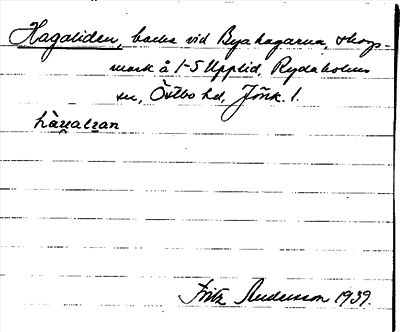 Hagaliden, backe vid Byahagarna, skogs-
mark å 1-5 Upplid, Rydaholms
sn, Östbo hd, Jönk. l.
hàɡalɩan
Fritz Andersson 1939.